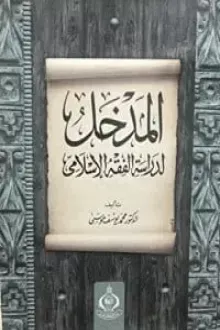 المدخل
لدراسة الفقه الإسلامي
تأليف
الدكتور محمد يوسف موسى